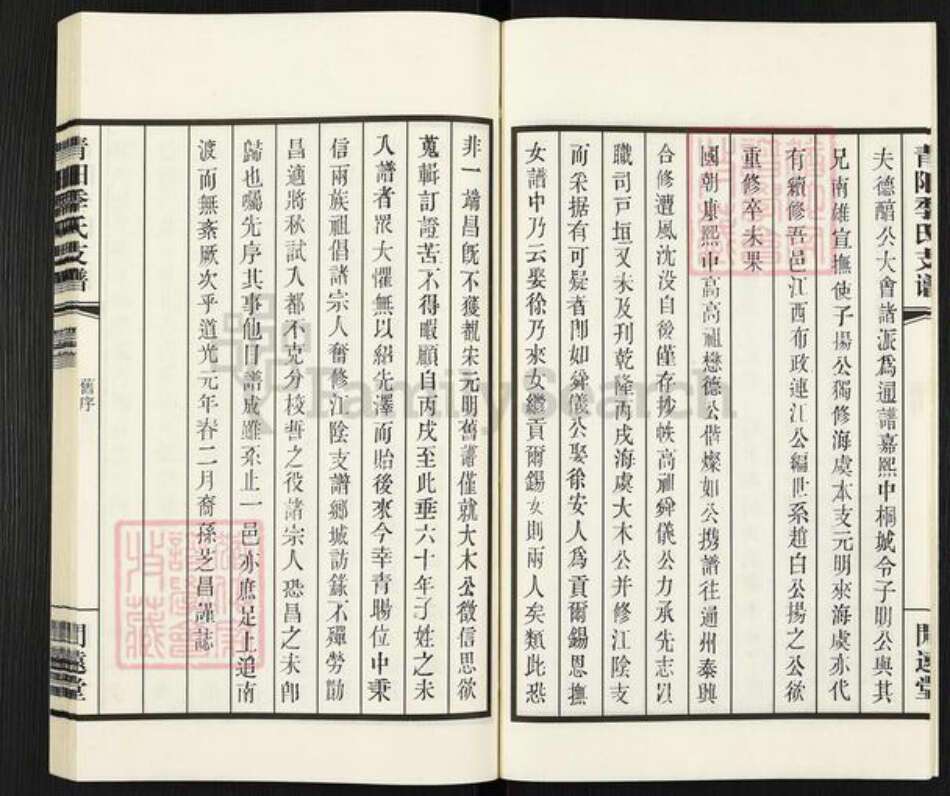 夫德醇公大會諸派爲通譜嘉熙中桐城令子朋公與其
兄南雄宣撫使子揚公獨修海虞本支元明來海虞亦代
有續修吾邑江西布政連江公編世系趙白公揚之公欲
重修卒未果
國朝康熙中高高祖懋德公偕燦如公携譜往通州泰興
合修遭風沈没自後僅存抄帙高祖舜儀公力承先志以
職司戸垣又未及刊乾隆丙戌海虞大木公并修江陰支
而采据有可疑者卽如舜儀公娶徐安人爲貢爾錫恩撫
女譜中乃云娶徐乃來女繼貢爾錫女則兩人矣類此恐
非一端昌旣不獲覩宋元明舊譜僅就大木公徵信思欲
蒐輯訂證苦不得暇顧自丙戌至此垂六十年子姓之未
入譜者衆大懼無以紹先澤而貽後來今幸青暘位中秉
信兩族祖倡諸宗人奮修江陰支譜鄉城訪錄不殫勞勩
昌適將秋試入都不克分校讐之役諸宗人恐昌之未卽
歸也囑先序其事他日譜成雖不止一邑亦庶足上追南
渡而無紊厥次乎道光元年春二月裔孫芝昌謹誌
青陽季氏支譜
舊序
閒遠堂
青陽季氏支譜
閒遠堂
FamilySearch